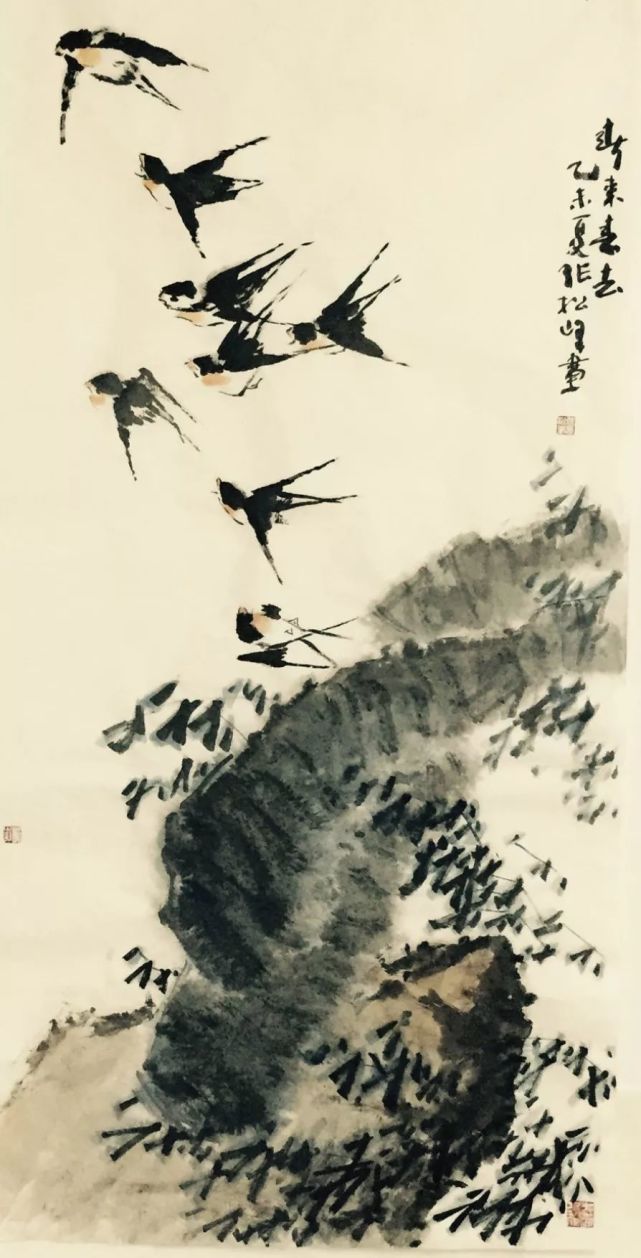 春来春去
乙未夏张松峰画